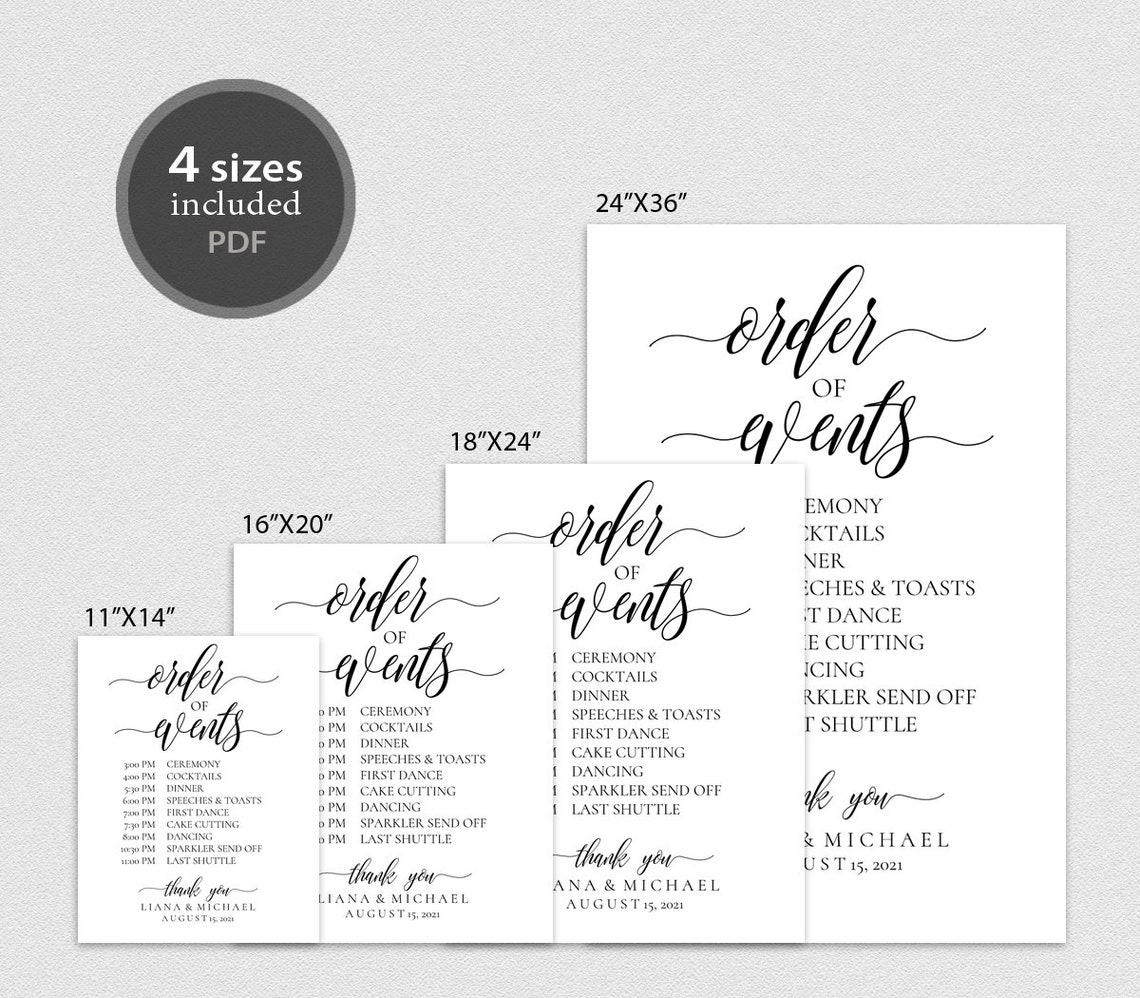 4 sizes
included
PDF
24”X36”
order
OF
events
EMONY
CKTAILS
NER
ECHES & TOASTS
ST DANCE
E CUTTING
NCING
RKLER SEND OFF
T SHUTTLE
nk you
& MICHAEL
UST 15, 2021
18”X24”
order
OF
events
CEREMONY
COCKTAILS
DINNER
SPEECHES & TOASTS
FIRST DANCE
CAKE CUTTING
DANCING
SPARKLER SEND OFF
LAST SHUTTLE
thank you
ANA & MICHAEL
AUGUST 15, 2021
16”X20”
order
OF
events
0 PM CEREMONY
0 PM COCKTAILS
0 PM DINNER
0 PM SPEECHES & TOASTS
0 PM FIRST DANCE
0 PM CAKE CUTTING
0 PM DANCING
0 PM SPARKLER SEND OFF
0 PM LAST SHUTTLE
thank you
LIANA & MICHAEL
AUGUST 15, 2021
11”X14”
order
OF
events
3:00 PM CEREMONY
4:00 PM COCKTAILS
5:30 PM DINNER
6:00 PM SPEECHES & TOASTS
7:00 PM FIRST DANCE
7:30 PM CAKE CUTTING
8:00 PM DANCING
10:30 PM SPARKLER SEND OFF
11:00 PM LAST SHUTTLE
thank you
LIANA & MICHAEL
AUGUST 15, 2021